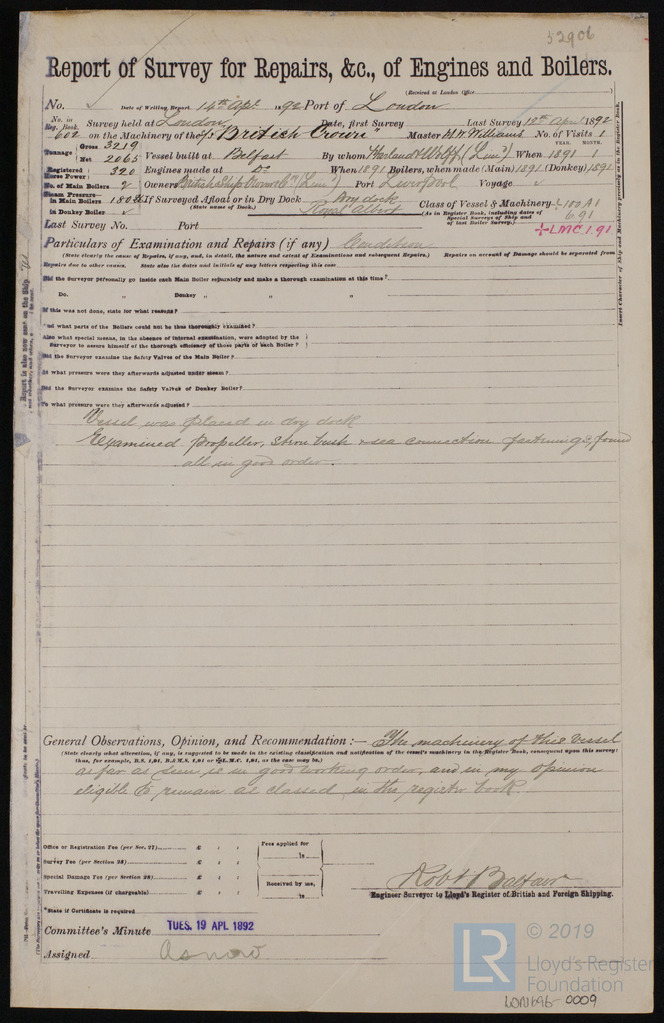 52906
Report of Survey for Repairs, &c., of Engines and Boilers.
(Received at London Office
No. ✓ Date of Writing Report 14th Apl 1892 Port of London
No. in Reg. Book. 602 Survey held at London Date, first Survey Last Survey 12th Apl 1892
on the Machinery of the "British Crown" Master Williams No. of Visits 1
Tonnage Gross 3219 Net 2065 Vessel built at Belfast By whom Harland & Wolff (Limd) When YEAR. 1891 MONTH. 1
Registered Horse Power 320 Engines made at Do When 1891 Boilers, when made (Main) 1891 (Donkey) 1891
No. of Main Boilers 2 Owners British Ship Owners Co (Lim) Port Liverpool Voyage ✓
Steam Pressure— in Main Boilers 180 lb If Surveyed Afloat or in Dry Dock Dry dock Class of Vessel & Machinery +100 A1
in Donkey Boiler ✓ (State name of Dock.) Royal Albert (As in Register Book, including dates of Special Surveys of Ship and of last Boiler Survey.) 6.91
Last Survey No. Port +LMC 1.91
Particulars of Examination and Repairs (if any) Condition
(State clearly the cause of Repairs, if any, and, in detail, the nature and extent of Examinations and subsequent Repairs.) Repairs on account of Damage should be separated from
Repairs due to other causes. State also the dates and initials of any letters respecting this case
Did the Surveyor personally go inside each Main Boiler separately and make a thorough examination at this time?
Do. „ Donkey „ „ „
If this was not done, state for what reasons?
And what parts of the Boilers could not be thus thoroughly examined?
Also what special means, in the absence of internal examination, were adopted by the
Surveyor to assure himself of the thorough efficiency of those parts of each Boiler?
Did the Surveyor examine the Safety Valves of the Main Boiler?
At what pressure were they afterwards adjusted under steam?
Did the Surveyor examine the Safety Valves of Donkey Boiler?
To what pressure were they afterwards adjusted?
Vessel was placed in dry dock
Examined propeller, stern bush & sea connection fastenings, found
all in good order.
General Observations, Opinion, and Recommendation:— The machinery of this vessel
(State clearly what alteration, if any, is suggested to be made in the existing classification and notification of the vessel's machinery in the Register Book, consequent upon this survey:
thus, for example, B.S. 1,91, B.&M.S. 1,91 or +L.M.C. 1,91, as the case may be.)
as far as seen is in good working order, and in my opinion
eligible to remain as classed in the register book.
Office or Registration Fee (per Sec. 27) £ : : Fees applied for
18
Survey Fee (per Section 28) £ : :
Special Damage Fee (per Section 28) £ : : Received by me,
Travelling Expenses (if chargeable) £ : : 18
Robt Balfour
Engineer Surveyor to Lloyd's Register of British and Foreign Shipping.
*State if Certificate is required
Committee's Minute TUES. 19 APL 1892
Assigned As now
Report is also now sent on the Ship
Insert Character of Ship and Machinery precisely as in the Register Book.
LR © 2019
Lloyd's Register
Foundation
LON696-0009